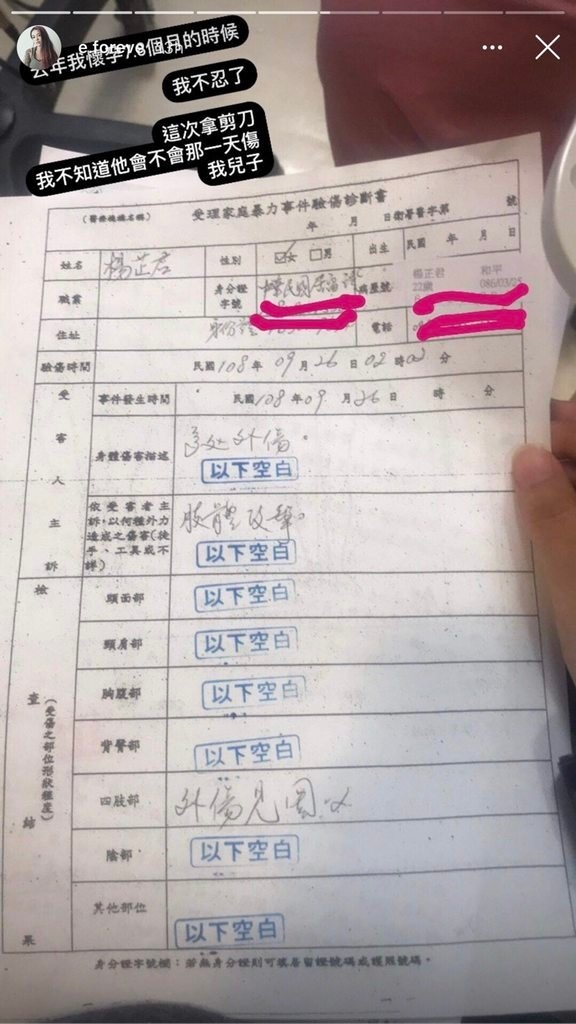 e.foreve 13h
去年我懷孕7.8個月的時候
我不忍了
這次拿剪刀
我不知道他會不會那一天傷
我兒子
(醫療機構名稱) 受理家庭暴力事件驗傷診斷書
年 月 日衛署醫字第 號
姓名 性別 ☑女 □男 出生 民國 年 月 日
職業 身分證字號 病歷號
楊正君 和平
22歲 086/03/25
住址 電話
驗傷時間 民國108年09月26日02時02分
受害人主訴
事件發生時間 民國108年09月26日 時 分
身體傷害描述 多處外傷。
以下空白
依受害者主訴,以何種外力造成之傷害(徒手、工具或不詳) 肢體攻擊。
以下空白
檢查結果
(受傷之部位形狀程度)
頭面部 以下空白
頸肩部 以下空白
胸腹部 以下空白
背臀部 以下空白
四肢部 外傷見圖
陰部 以下空白
其他部位 以下空白
身分證字號欄:若無身分證則可填居留證號碼或護照號碼。